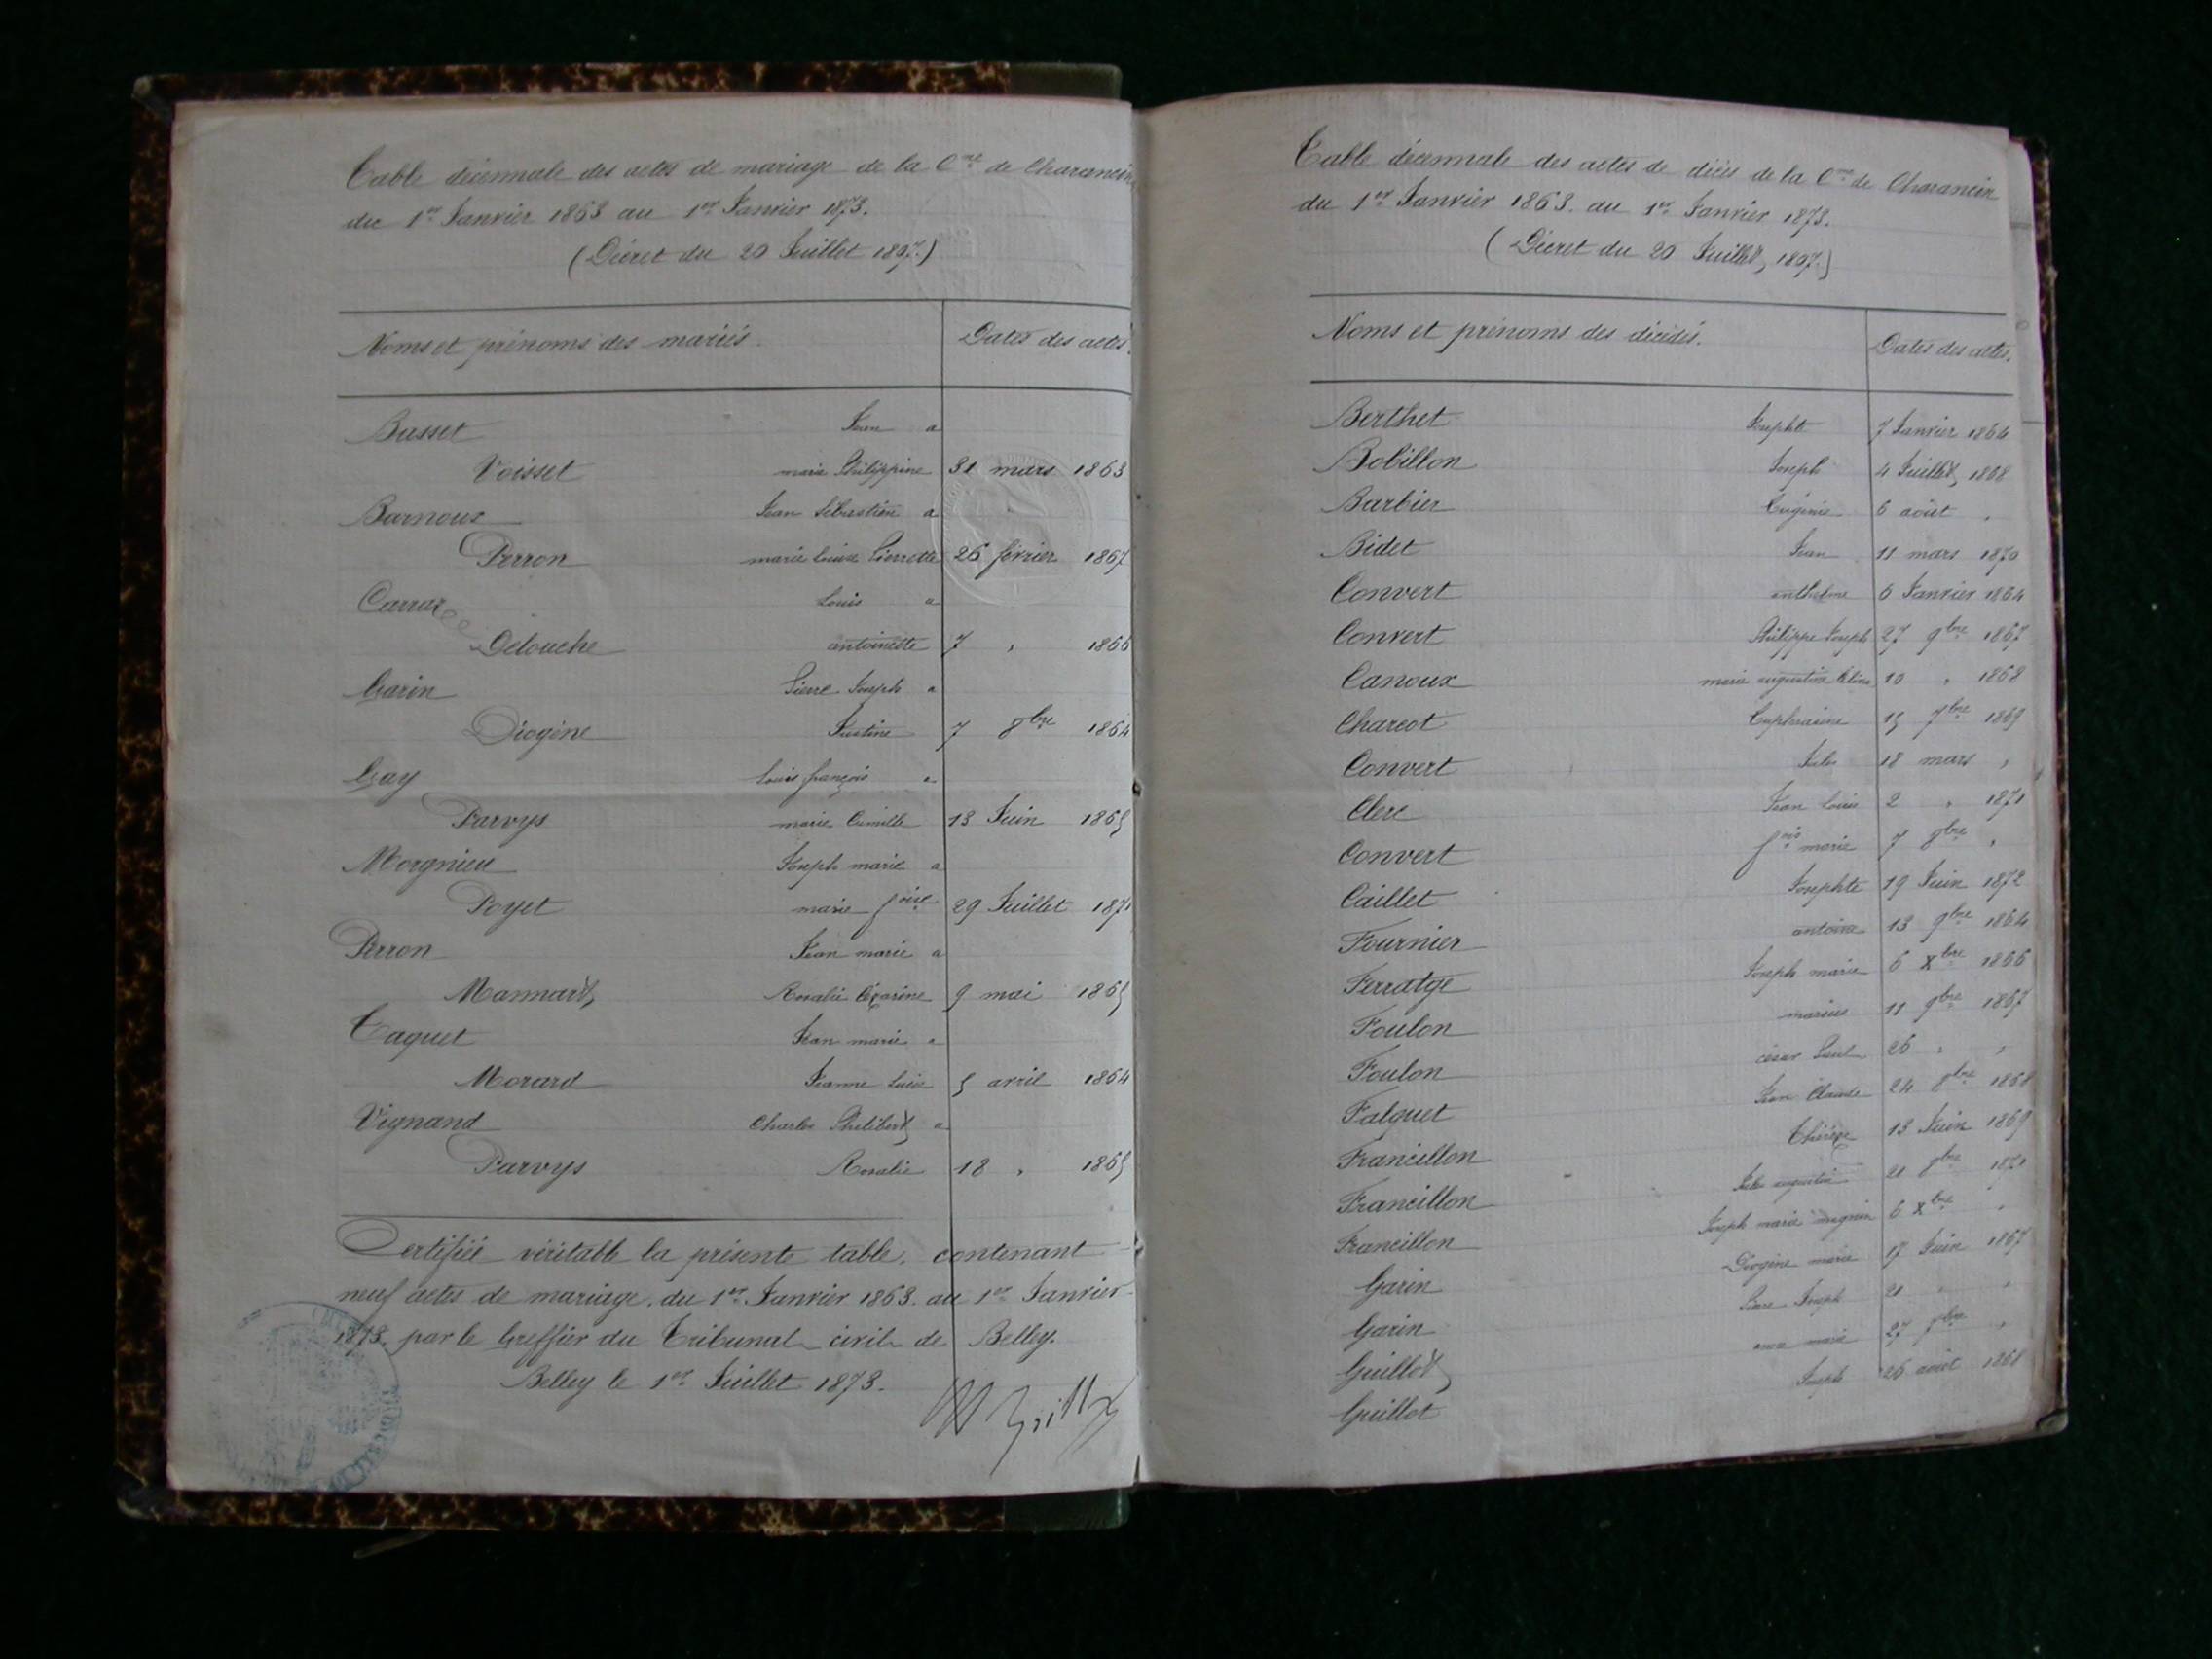 Table décennale des actes de mariage de la Cne de Charancin
du 1er Janvier 1863 au 1er Janvier 1873.
(Décret du 20 Juillet 1807.)
Noms et prénoms des mariés. Dates des actes.
Basset Jean a
Voisset marie Philippine 31 mars 1863
Barnoux Jean Sébastien a
Perron marie louise Pierrette 26 février 1867
Carraz Louis a
Delouche antoinette 7 " 1866
Garin Pierre Joseph a
Diogène Justine 7 8bre 1864
Gay Louis françois a
Parvys marie Camille 13 Juin 1865
Morgnieu Joseph marie a
Poyet marie foise 29 Juillet 1871
Perron Jean marie a
Mannart Rosalie Césarine 9 mai 1865
Taquet Jean marie a
Morard Jeanne Luise 5 avril 1864
Vignand Charles Philibert a
Parvys Rosalie 18 " 1865
Certifiée véritable la présente table, contenant
neuf actes de mariage, du 1er Janvier 1863. au 1er Janvier
1873, par le Greffier du Tribunal civil de Belley.
Belley le 1er Juillet 1873.
Table décennale des actes de décès de la Cne de Charancin
du 1er Janvier 1863. au 1er Janvier 1873.
(Décret du 20 Juillet 1807.)
Noms et prénoms des décédés. Dates des actes.
Berthet Josephte 7 Janvier 1864
Bobillon Joseph 4 Juillet 1868
Barbier Eugénie 6 août "
Bidet Jean 11 mars 1870
Convert anthelme 6 Janvier 1864
Convert Philippe Joseph 27 9bre 1867
Canoux marie augustine 10 " 1868
Charcot Euphrasine 15 7bre 1869
Convert Jules 18 mars "
Clerc Jean Louis 2 " 1871
Convert fois marie 7 8bre "
Caillet Josephte 19 Juin 1872
Fournier antoine 13 9bre 1864
Ferratge Joseph marie 6 Xbre 1866
Foulon marius 11 9bre 1867
Foulon césar Paul 26 " "
Falquet Jean Claude 24 8bre 1868
Francillon Thérèze 13 Juin 1869
Francillon Jules augustin 21 8bre 1871
Francillon Joseph marie 6 Xbre "
Garin Diogène marie 17 Juin 1867
Garin Pierre Joseph 21 " "
Guillot marie 27 7bre "
Guillot Joseph 26 août 1868